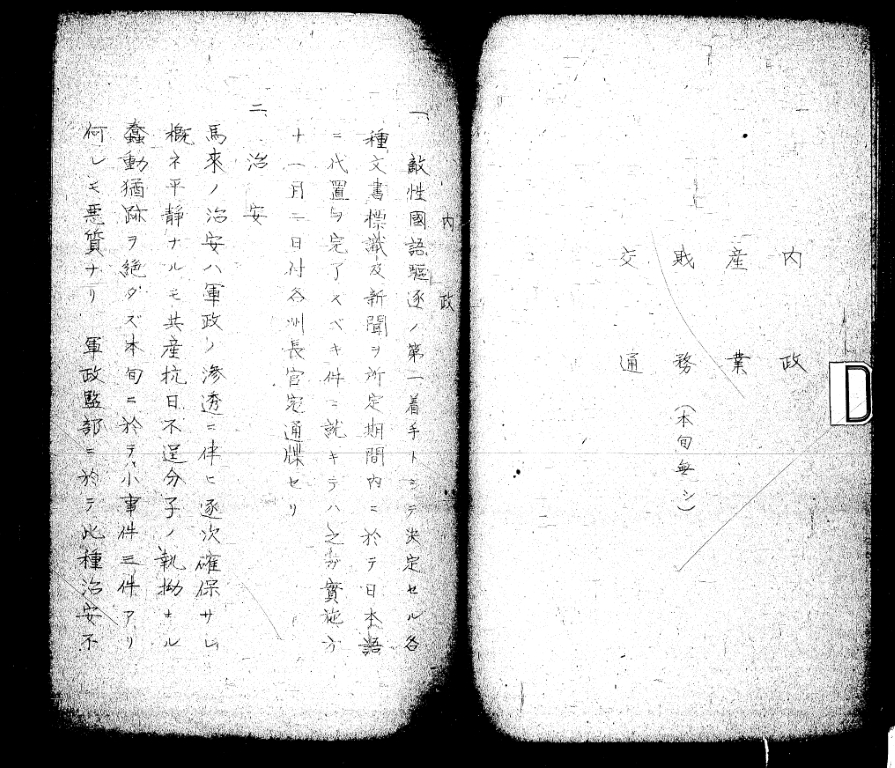 内政
産業
財務(本旬無シ)
交通
D
内政
一、敵性國語驅逐ノ第一着手トシテ決定セル各
種文書標識及新聞ヲ所定期間内ニ於テ日本語
ニ代置ヲ完了スベキ件ニ就キテハ之ガ實施方
十一月二日付各州長官宛通牒セリ
二、治安
馬來ノ治安ハ軍政ノ滲透ニ伴ヒ逐次確保サレ
概ネ平靜ナルモ共産抗日不逞分子ノ執拗ナル
蠢動猶跡ヲ絶タズ本旬ニ於テ小事件三件アリ
何レモ悪質ナリ 軍政監部ニ於テ此種治安不